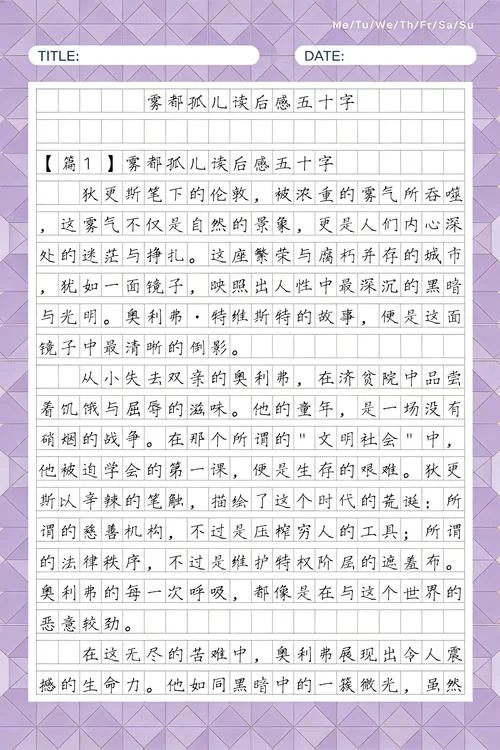 Me/Tu/We/Th/Fr/Sa/Su
TITLE: DATE:
雾都孤儿读后感五十字
【篇1】雾都孤儿读后感五十字
狄更斯笔下的伦敦，被浓重的雾气所吞噬
，这雾气不仅是自然的景象，更是人们内心深
处的迷茫与挣扎。这座繁荣与腐朽并存的城市
，犹如一面镜子，映照出人性中最深沉的黑暗
与光明。奥利弗·特维斯特的故事，便是这面
镜子中最清晰的倒影。
从小失去双亲的奥利弗，在济贫院中品尝
着饥饿与屈辱的滋味。他的童年，是一场没有
硝烟的战争。在那个所谓的"文明社会"中，
他被迫学会的第一课，便是生存的艰难。狄更
斯以辛辣的笔触，描绘了这个时代的荒诞：所
谓的慈善机构，不过是压榨穷人的工具；所谓
的法律秩序，不过是维护特权阶层的遮羞布。
奥利弗的每一次呼吸，都像是在与这个世界的
恶意较劲。
在这无尽的苦难中，奥利弗展现出令人震
撼的生命力。他如同黑暗中的一簇微光，虽然